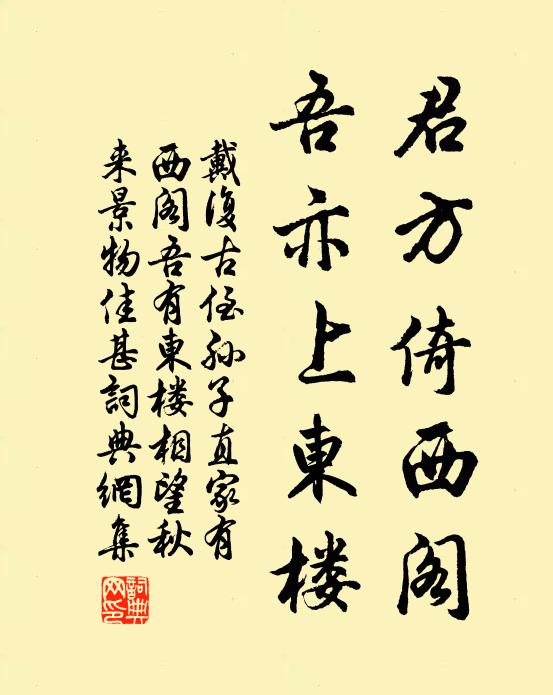 君方倚西阁
吾亦上東楼
戴復古侄孙子直家有
西阁吾有東楼相望秋
来景物佳甚詞典網集
詞典
网印